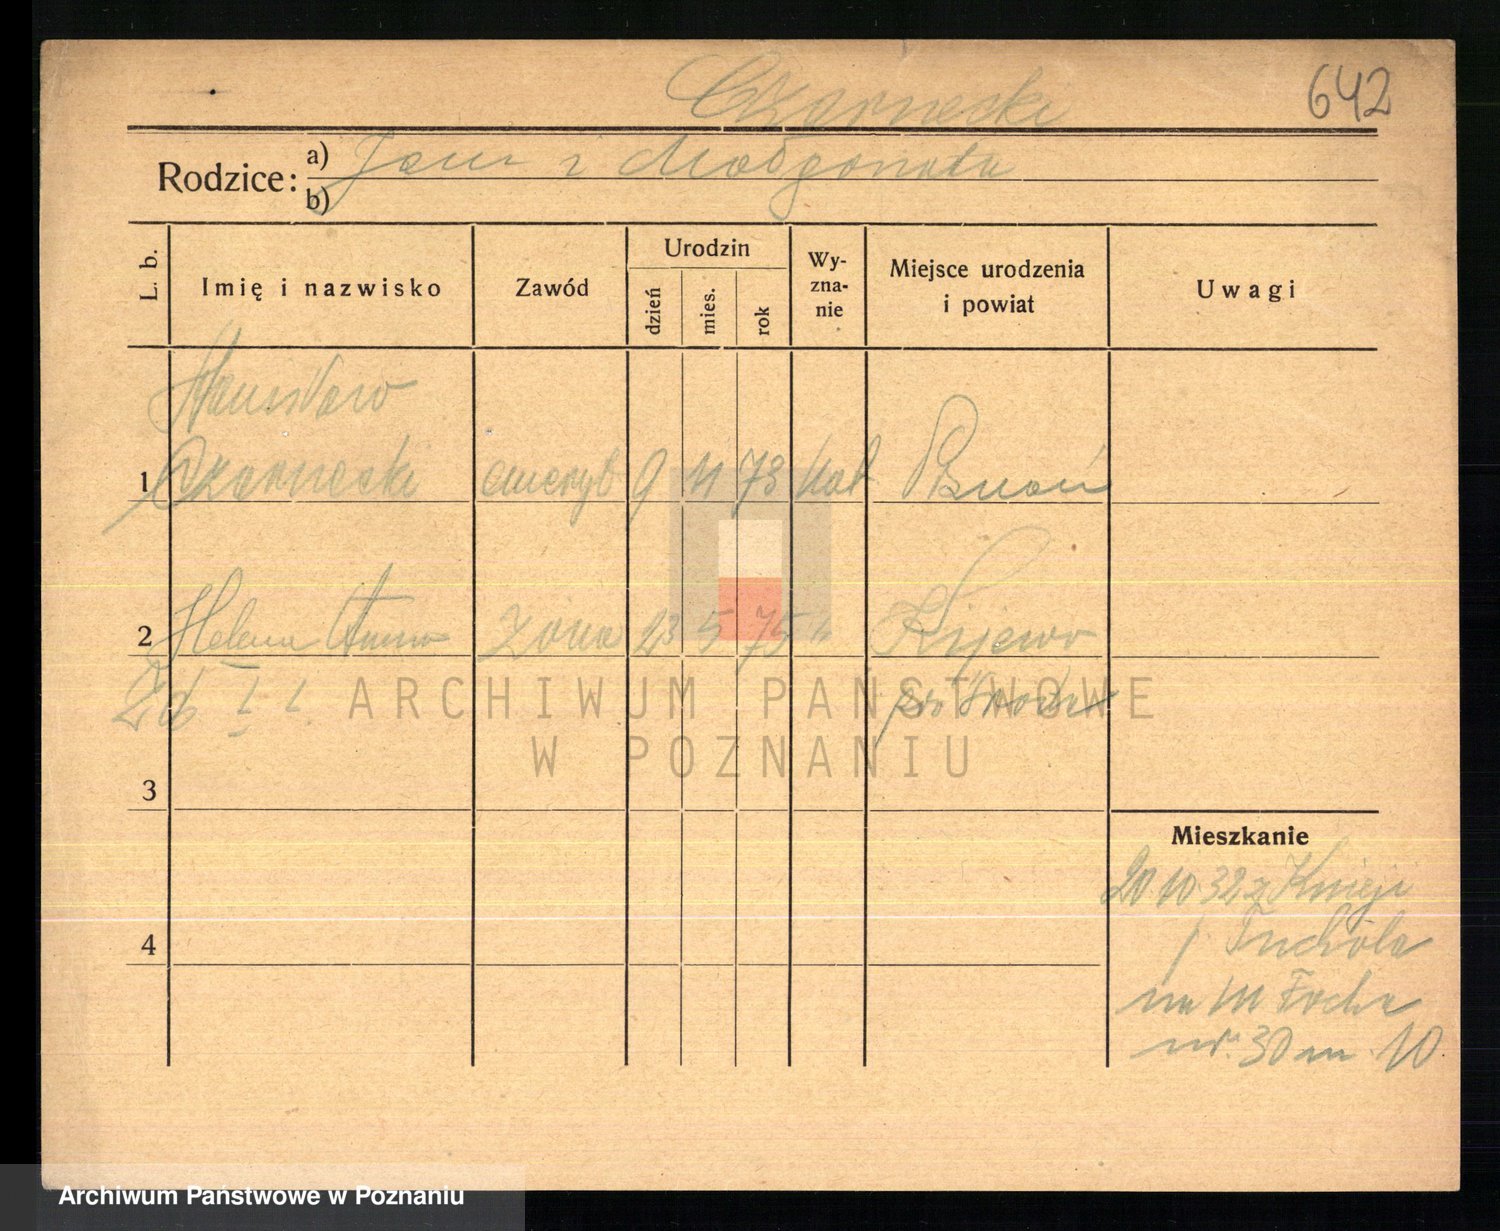 642
Czarnecki
Rodzice: a) Jan i Małgorzata
b)
L. b. Imię i nazwisko Zawód Urodzin dzień mies. rok Wy- zna- nie Miejsce urodzenia i powiat Uwagi
Stanisław
1 Czarnecki emeryt 9 11 73 kat Poznań
2 Helena Anna żona 23 5 75 " Kijewo
ARCHIWUM PAŃSTWOWE
W POZNANIU
3
Mieszkanie
20 10 32 z Knieji
/ Tuchola
4
na M Focha
nr. 30 m 10.
Archiwum Państwowe w Poznaniu